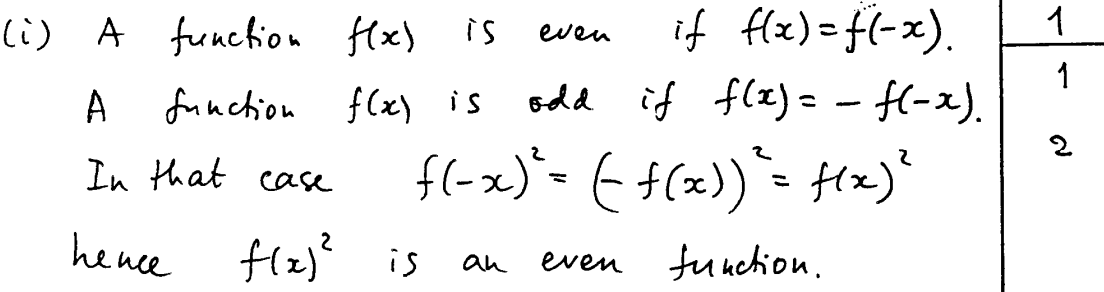 (i) A function f(x) is even if f(x) = f(-x). 1
A function f(x) is odd if f(x) = - f(-x). 1
In that case f(-x)² = (- f(x))² = f(x)² 2
hence f(x)² is an even function.